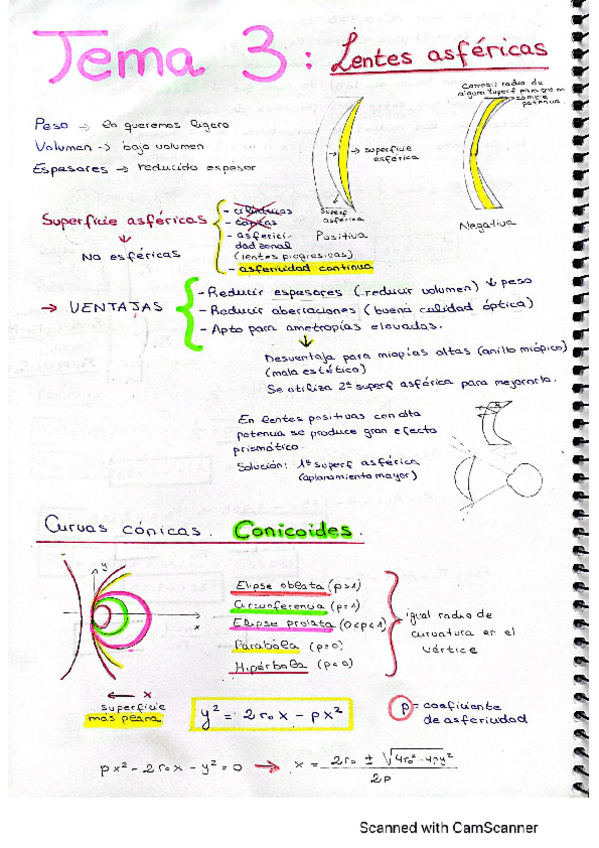 Tema 3 : Lentes asféricas
Peso → lo queremos ligero
Volumen → bajo volumen
Espesores → reducido espesor
→ superficie
esférica
superf
asférica
Positiva
radio de
potencia.
Negativa
Superficie asféricas
No esféricas
- cilíndricas
- tóricas
- asferici-
dad zonal
(lentes progresivas)
- asfericidad continua
→ VENTAJAS
- Reducir espesores (reducir volumen) ↓ peso
- Reducir aberraciones (buena calidad óptica)
- Apto para ametropías elevadas.
Desventaja para miopías altas (anillo miópico)
(mala estética)
Se utiliza 2ª superf asférica para mejorarla.
En lentes positivas con alta
potencia se produce gran efecto
prismático.
Solución: 1ª superf asférica
(aplanamiento mayor)
Curvas cónicas. Conicoides.
y
x
Elipse oblata (p>1)
Circunferencia (p=1)
Elipse prolata (0<p<1)
Parábola (p=0)
Hipérbola (p<0)
igual radio de
curvatura en el
vértice
← x
superficie
más plana
y² = 2r₀x - px²
p = coeficiente
de asfericidad
px² - 2r₀x - y² = 0 → x = 2r₀ ± √4r₀² - 4py² / 2p
Scanned with CamScanner